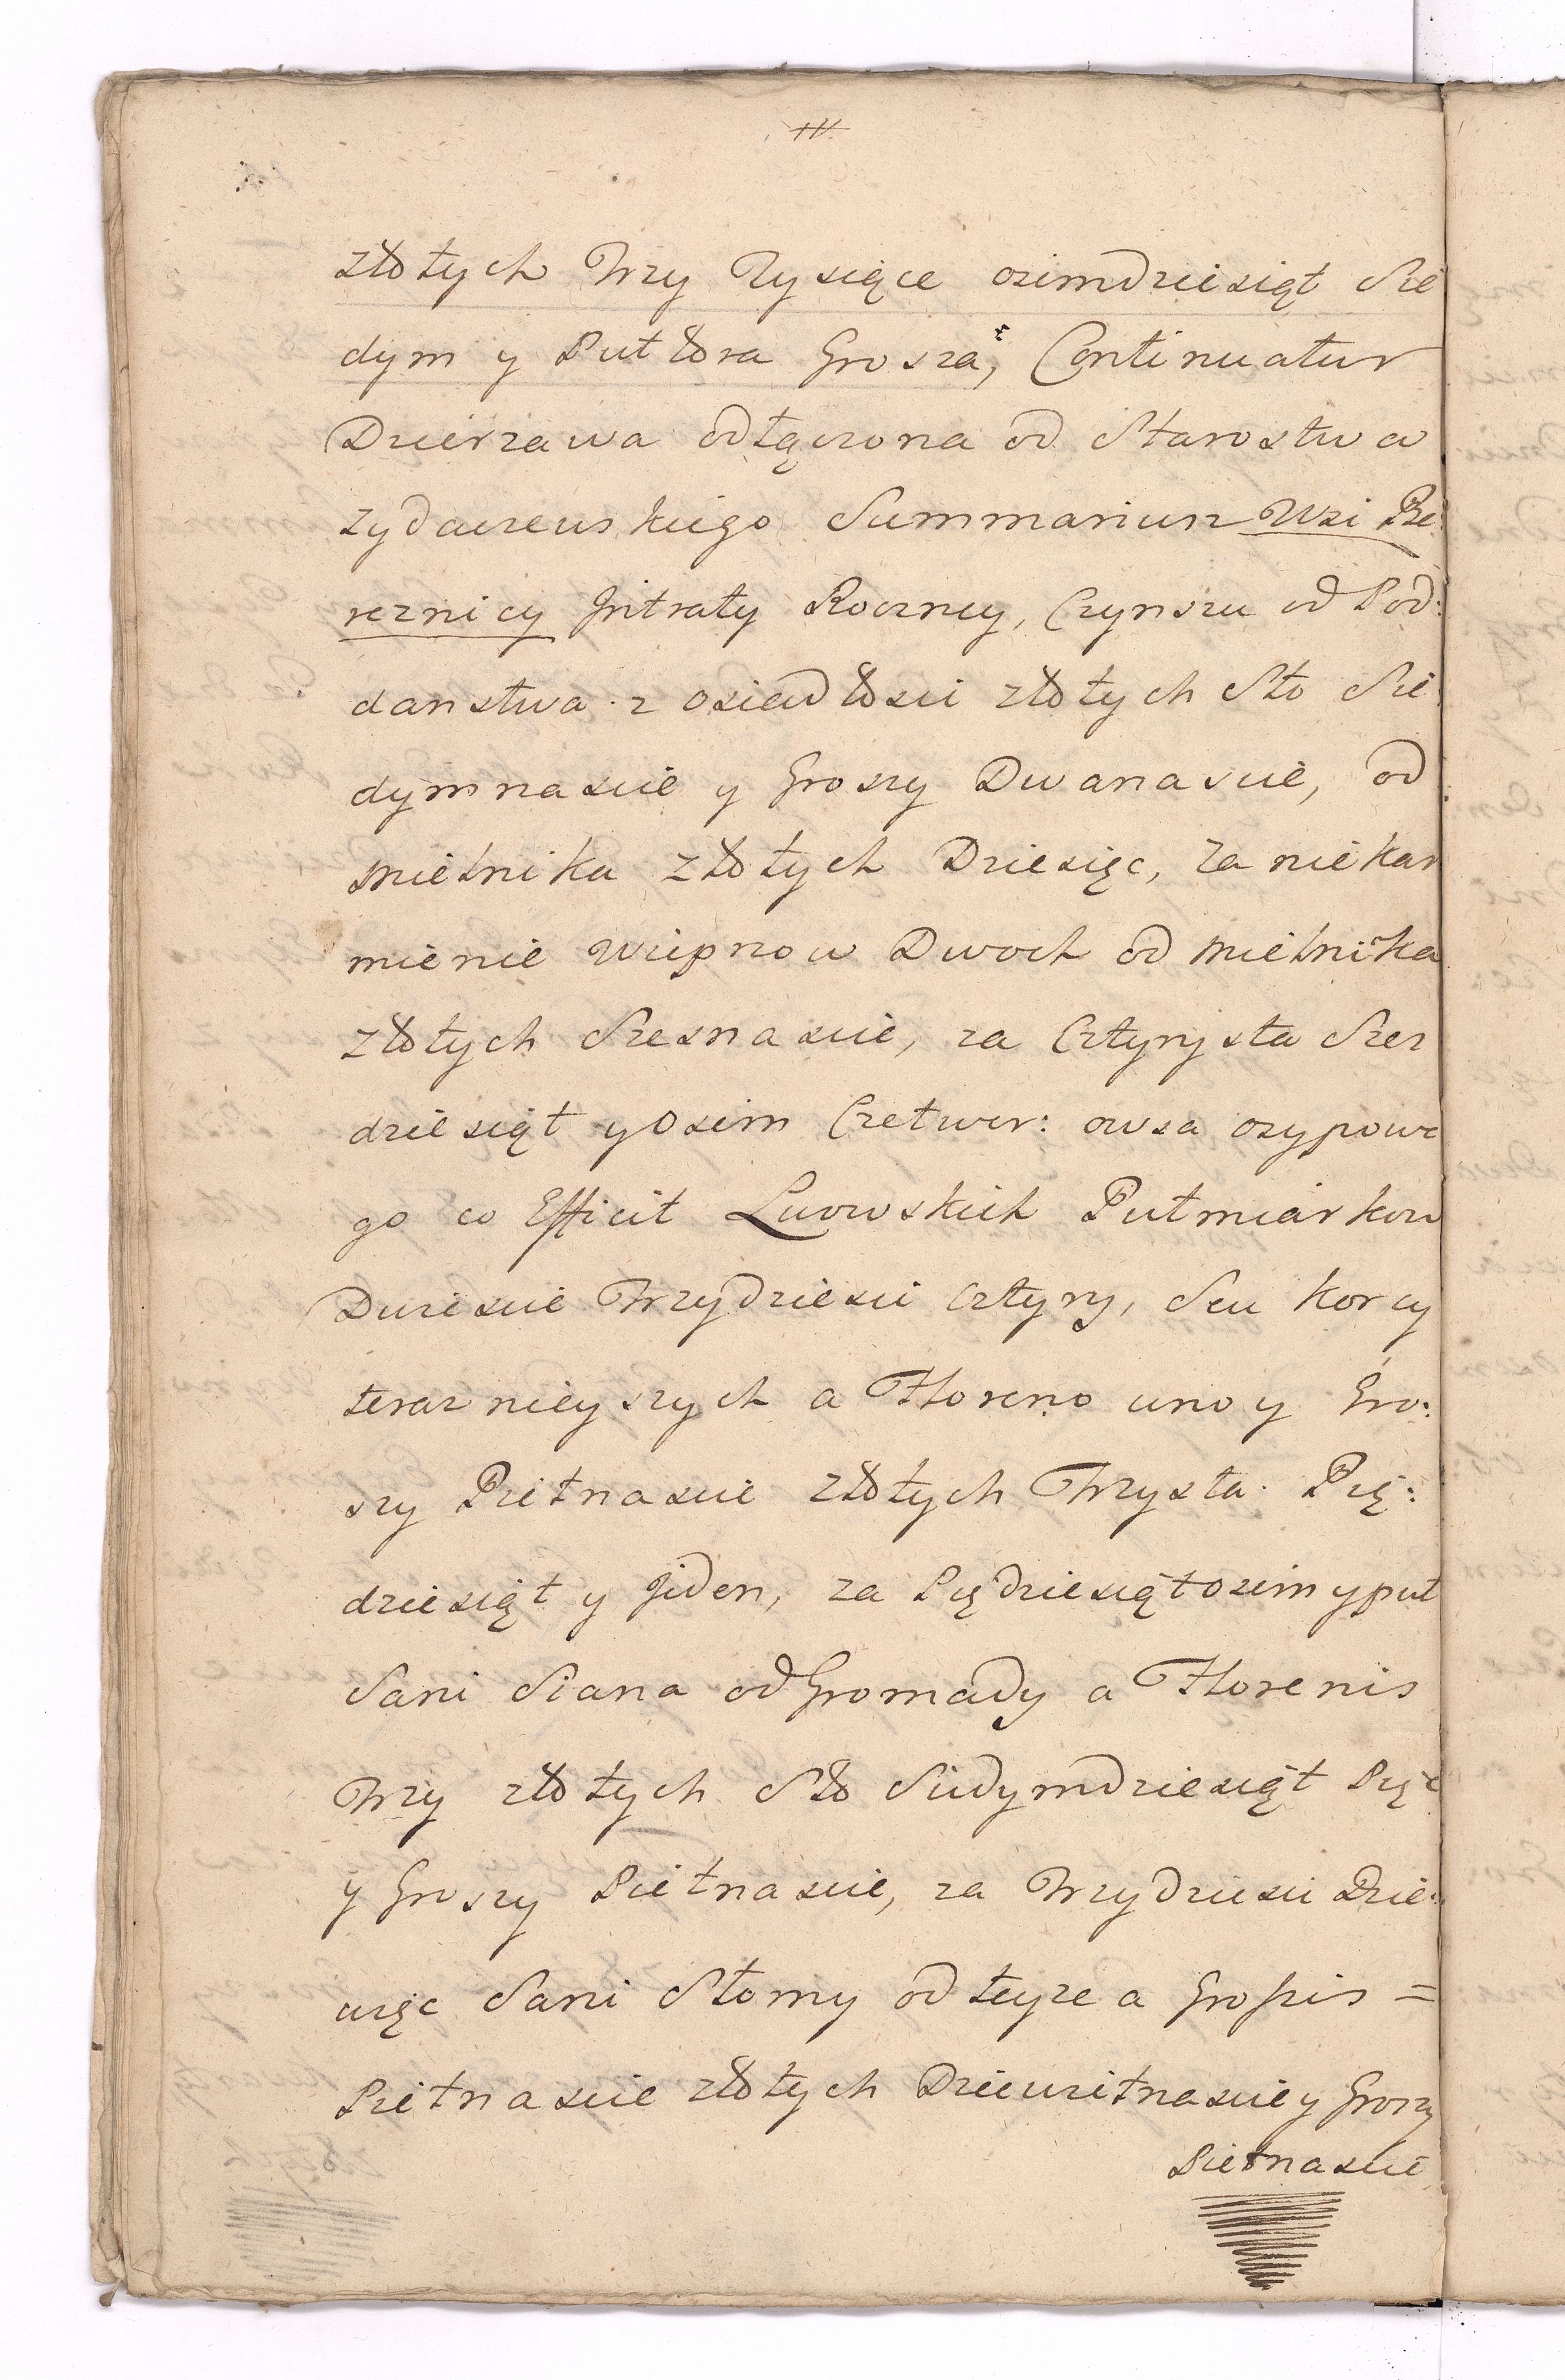 złotych Trzy Tysiące osimdziesiąt Sie
dym y Puł tora Grosza, Continuatur
Dzierzawa odłączona od Starostwa
zydaczewskiego Summariusz Wsi Be
reznicy Jntraty Roczney, Czynszu od Pod:
danstwa z osiadłosci złotych Sto Sie
dymnascie y Groszy Dwanascie, od
mielnika złotych Dziesięc, za niekar
mienie wieprzow Dwoch od mielnika
złotych Szesnascie, za Cztyrysta Szes
dziesiąt y Osim Czetwer: owsa osypowe
go co Efficit Lwowskich Pułmiarkow
Dwiescie Trzydziesci cztyry, Seu korcy
teraznieyszych a Floreno uno y Gro:
szy Pietnascie złotych Trzysta Pię:
dziesiąt y Jeden, za Piędziesiąt osim y puł
Sani Siana od Gromady a Florenis
Trzy złotych Sto Siedymdziesiąt Pięc
y Groszy Pietnascie, za Trzydziesci Dzie:
więc Sani Słomy od teyze a Grossis =
Pietnascie złotych Dziewietnascie y Groszy
Pietnascie